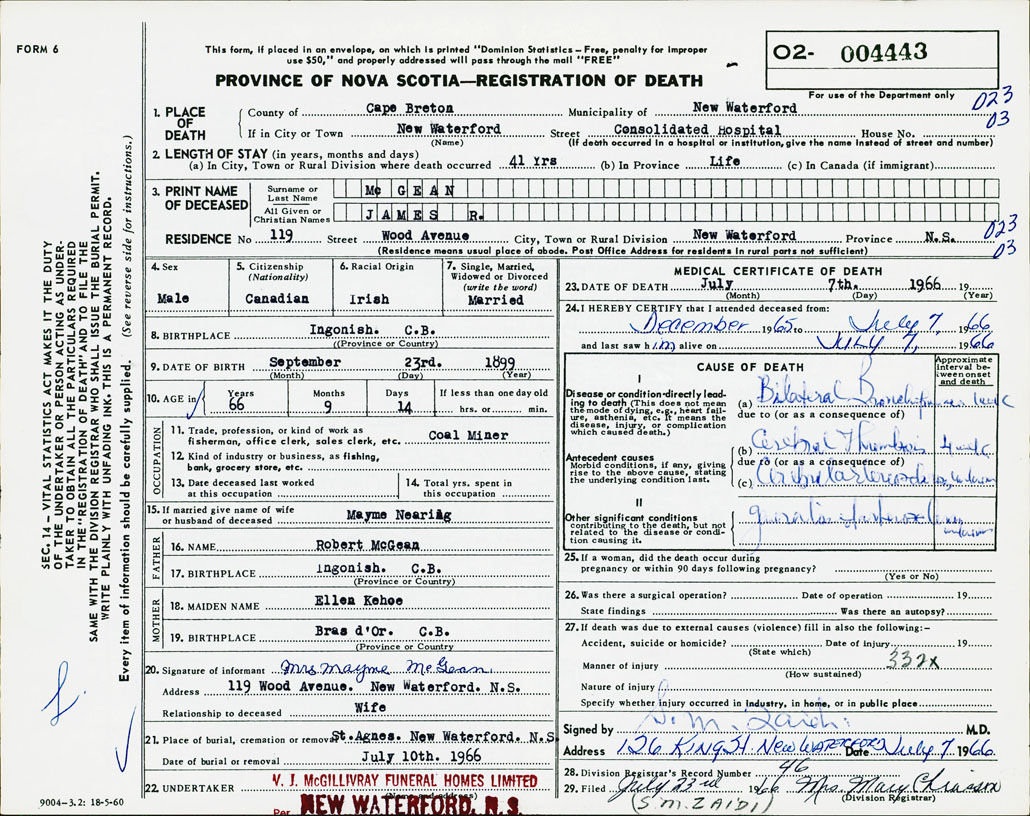 FORM 6
This form, if placed in an envelope, on which is printed "Dominion Statistics – Free, penalty for improper
use $50," and properly addressed will pass through the mail "FREE"
PROVINCE OF NOVA SCOTIA—REGISTRATION OF DEATH
O2- 004443
For use of the Department only
023
03
1. PLACE OF DEATH
County of Cape Breton Municipality of New Waterford
If in City or Town New Waterford Street Consolidated Hospital House No.
(Name) (If death occurred in a hospital or institution, give the name instead of street and number)
2. LENGTH OF STAY (in years, months and days)
(a) In City, Town or Rural Division where death occurred 41 Yrs (b) In Province Life (c) In Canada (if immigrant)
3. PRINT NAME OF DECEASED
Surname or Last Name Mc GEAN
All Given or Christian Names JAMES R.
RESIDENCE No 119 Street Wood Avenue City, Town or Rural Division New Waterford Province N.S.
(Residence means usual place of abode. Post Office Address for residents in rural parts not sufficient)
023
03
4. Sex Male
5. Citizenship (Nationality) Canadian
6. Racial Origin Irish
7. Single, Married, Widowed or Divorced (write the word) Married
8. BIRTHPLACE Ingonish. C.B.
((Province or Country)
9. DATE OF BIRTH September 23rd. 1899
(Month) (Day) (Year)
10. AGE in Years 66 Months 9 Days 14 If less than one day old
hrs. or min.
OCCUPATION
11. Trade, profession, or kind of work as
fisherman, office clerk, sales clerk, etc. Coal Miner
12. Kind of industry or business, as fishing,
bank, grocery store, etc.
13. Date deceased last worked
at this occupation
14. Total yrs. spent in
this occupation
15. If married give name of wife
or husband of deceased Mayme Nearing
FATHER
16. NAME Robert McGean
17. BIRTHPLACE Ingonish. C.B.
(Province or Country)
MOTHER
18. MAIDEN NAME Ellen Kehoe
19. BIRTHPLACE Bras d'Or. C.B.
(Province or Country
20. Signature of informant Mrs Mayme McGean
Address 119 Wood Avenue. New Waterford. N.S.
Relationship to deceased Wife
21. Place of burial, cremation or removal St.Agnes. New Waterford. N.S.
Date of burial or removal July 10th. 1966
22. UNDERTAKER V. J. McGILLIVRAY FUNERAL HOMES LIMITED
Per NEW WATERFORD, N. S.
MEDICAL CERTIFICATE OF DEATH
23. DATE OF DEATH July 7th. 1966 19
(Month) (Day) (Year)
24. I HEREBY CERTIFY that I attended deceased from:
December 1965 to July 7, 1966
and last saw him alive on JULY 7, 1966
CAUSE OF DEATH
Approximate interval between onset and death
I
Disease or condition directly leading to death (This does not mean
the mode of dying, e.g., heart failure, asthenia, etc. It means the
disease, injury, or complication
which caused death.)
(a) Bilateral
due to (or as a consequence of)
Antecedent causes
Morbid conditions, if any, giving
rise to the above cause, stating
the underlying condition last.
(b) Cerebral Thrombosis
due to (or as a consequence of)
(c)
II
Other significant conditions
contributing to the death, but not
related to the disease or condition causing it.
25. If a woman, did the death occur during
pregnancy or within 90 days following pregnancy?
(Yes or No)
26. Was there a surgical operation? Date of operation 19
State findings Was there an autopsy?
27. If death was due to external causes (violence) fill in also the following:–
Accident, suicide or homicide? Date of injury 19
(State which)
332X
Manner of injury
(How sustained)
Nature of injury
Specify whether injury occurred in industry, in home, or in public place
Signed by M.D.
Address 126 KING St. NEW WATERFORD Date July 7 1966
28. Division Registrar's Record Number 46
29. Filed July 23rd 1966 Mrs. Mary Chiasson
(Division Registrar)
(S.M. ZAIDI)
SEC. 14 – VITAL STATISTICS ACT MAKES IT THE DUTY
OF THE UNDERTAKER OR PERSON ACTING AS UNDERTAKER TO OBTAIN ALL THE PARTICULARS REQUIRED
IN THE "REGISTRATION OF DEATH" AND TO FILE THE
SAME WITH THE DIVISION REGISTRAR WHO SHALL ISSUE THE BURIAL PERMIT.
WRITE PLAINLY WITH UNFADING INK. THIS IS A PERMANENT RECORD.
Every item of information should be carefully supplied. (See reverse side for instructions.)
9004–3.2: 18-5-60